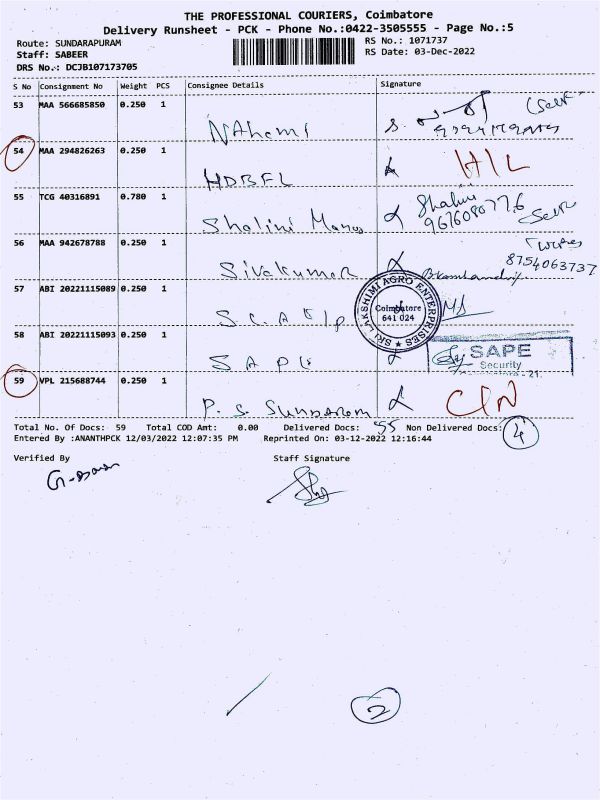 THE PROFESSIONAL COURIERS, Coimbatore
Delivery Runsheet - PCK - Phone No.:0422-3505555 - Page No.:5
Route: SUNDARAPURAM
RS No.: 1071737
Staff: SABEER
RS Date: 03-Dec-2022
DRS No.: DCJB107173705
S No Consignment No Weight PCS Consignee Details Signature
53 MAA 566685850 0.250 1
54 MAA 294826263 0.250 1
HDBFL
55 TCG 40316891 0.780 1 Shalini
Shalini
56 MAA 942678788 0.250 1
Sivakumar
8754063737
57 ABI 20221115089 0.250 1
SRI LAKSHIMI AGRO ENTERPRISES
Coimbatore
641 024
58 ABI 20221115093 0.250 1
SAPE
Security
59 VPL 215688744 0.250 1
P. S. Sundaram
Total No. Of Docs: 59 Total COD Amt: 0.00 Delivered Docs: 55 Non Delivered Docs: 4
Entered By :ANANTHPCK 12/03/2022 12:07:35 PM Reprinted On: 03-12-2022 12:16:44
Verified By Staff Signature
2